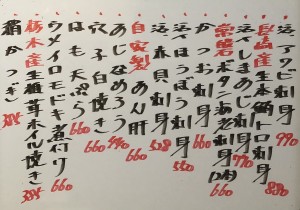 活アワビ刺身 990
長崎産生本鮪トロ刺身
活〆しまあじ刺身 770
ボタン海老刺身 660
かつお刺身 660
貝刺身 550
貝刺身 528
自家製あん肝 660
あじなめろう 660
穴子白焼き 660
はも天ぷら 660
ウメイロモドキ煮付け 660
栃木産生椎茸ホイル焼き 384
絹かつぎ 384